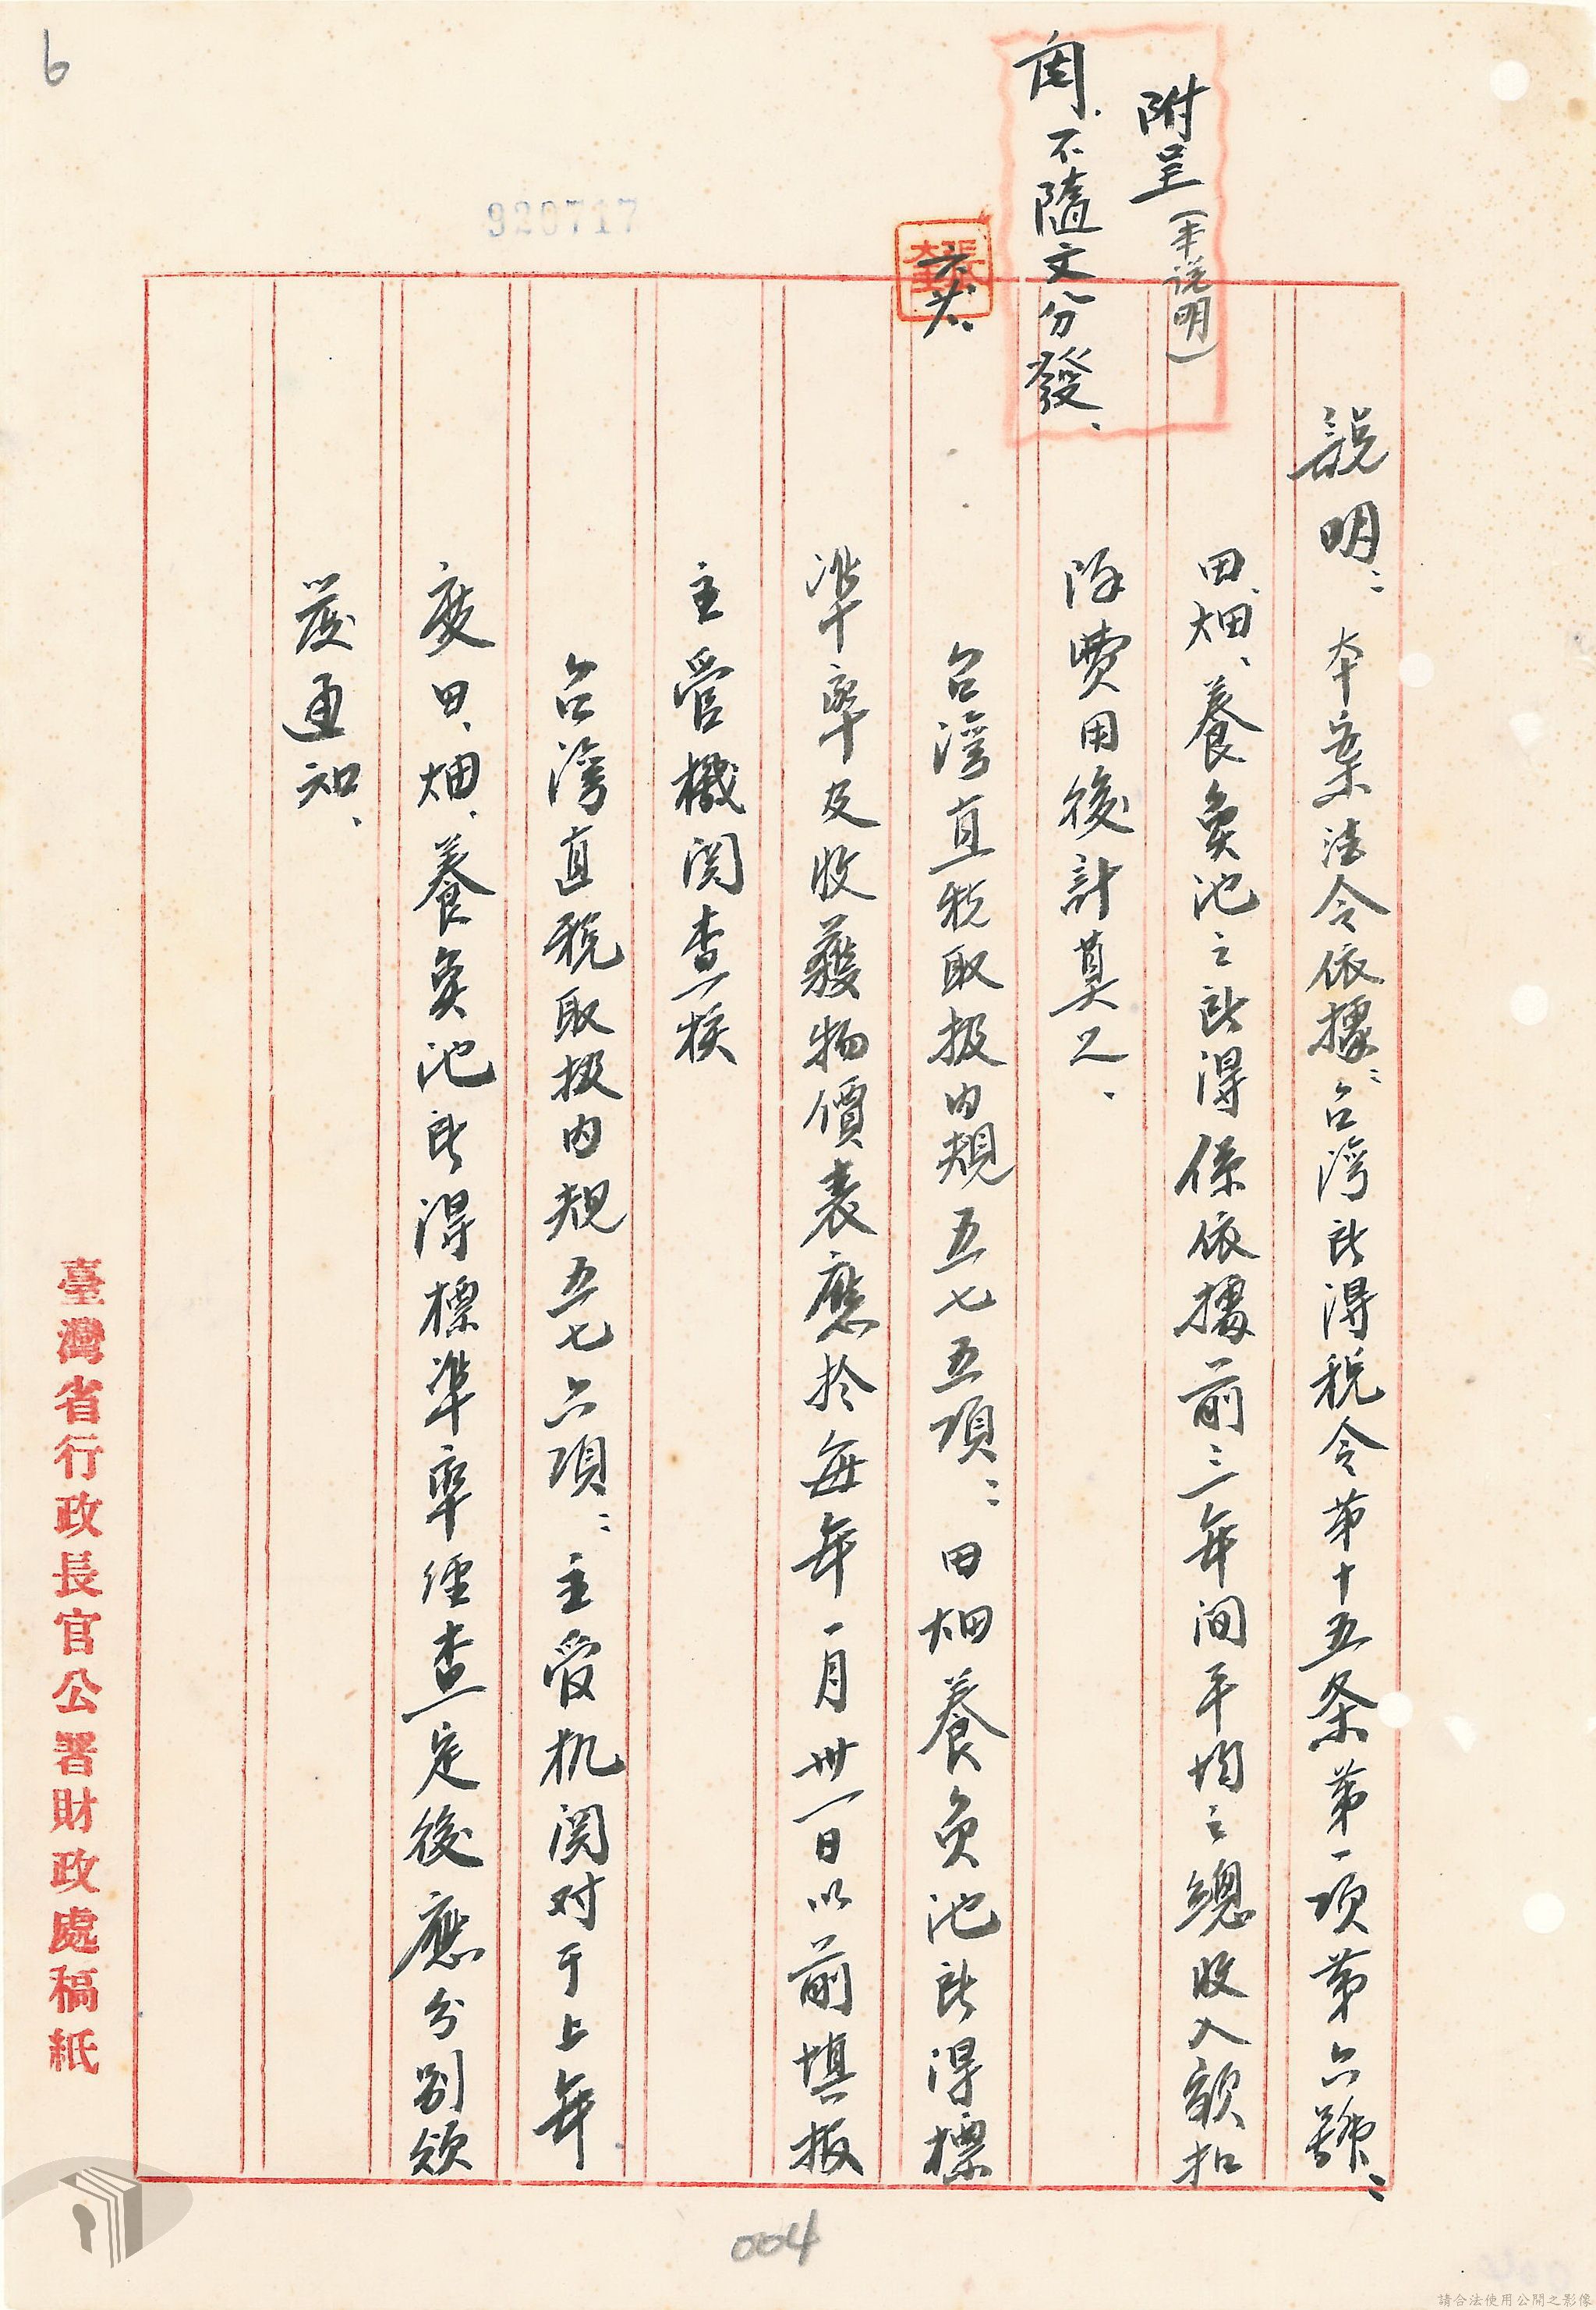 6
附呈(本說明)
閱.不隨文分發、
920717
說明：本案法令依據：台湾所得税令第十五条第一項第六號：
田、畑、養魚池之所得係依據前三年间平均之總收入額扣
除費用後計算之、
台湾直税取扱内規五七五項：田畑養魚池所得標
準率及收穫物價表應於每年一月卅一日以前填报
主管機関查核
台湾直税取扱内規五七六項：主管机関对于上年
度田、畑、養魚池所得標準率经查定後應分别頒
發通知、
臺灣省行政長官公署財政處稿紙
004
請合法使用公開之影像